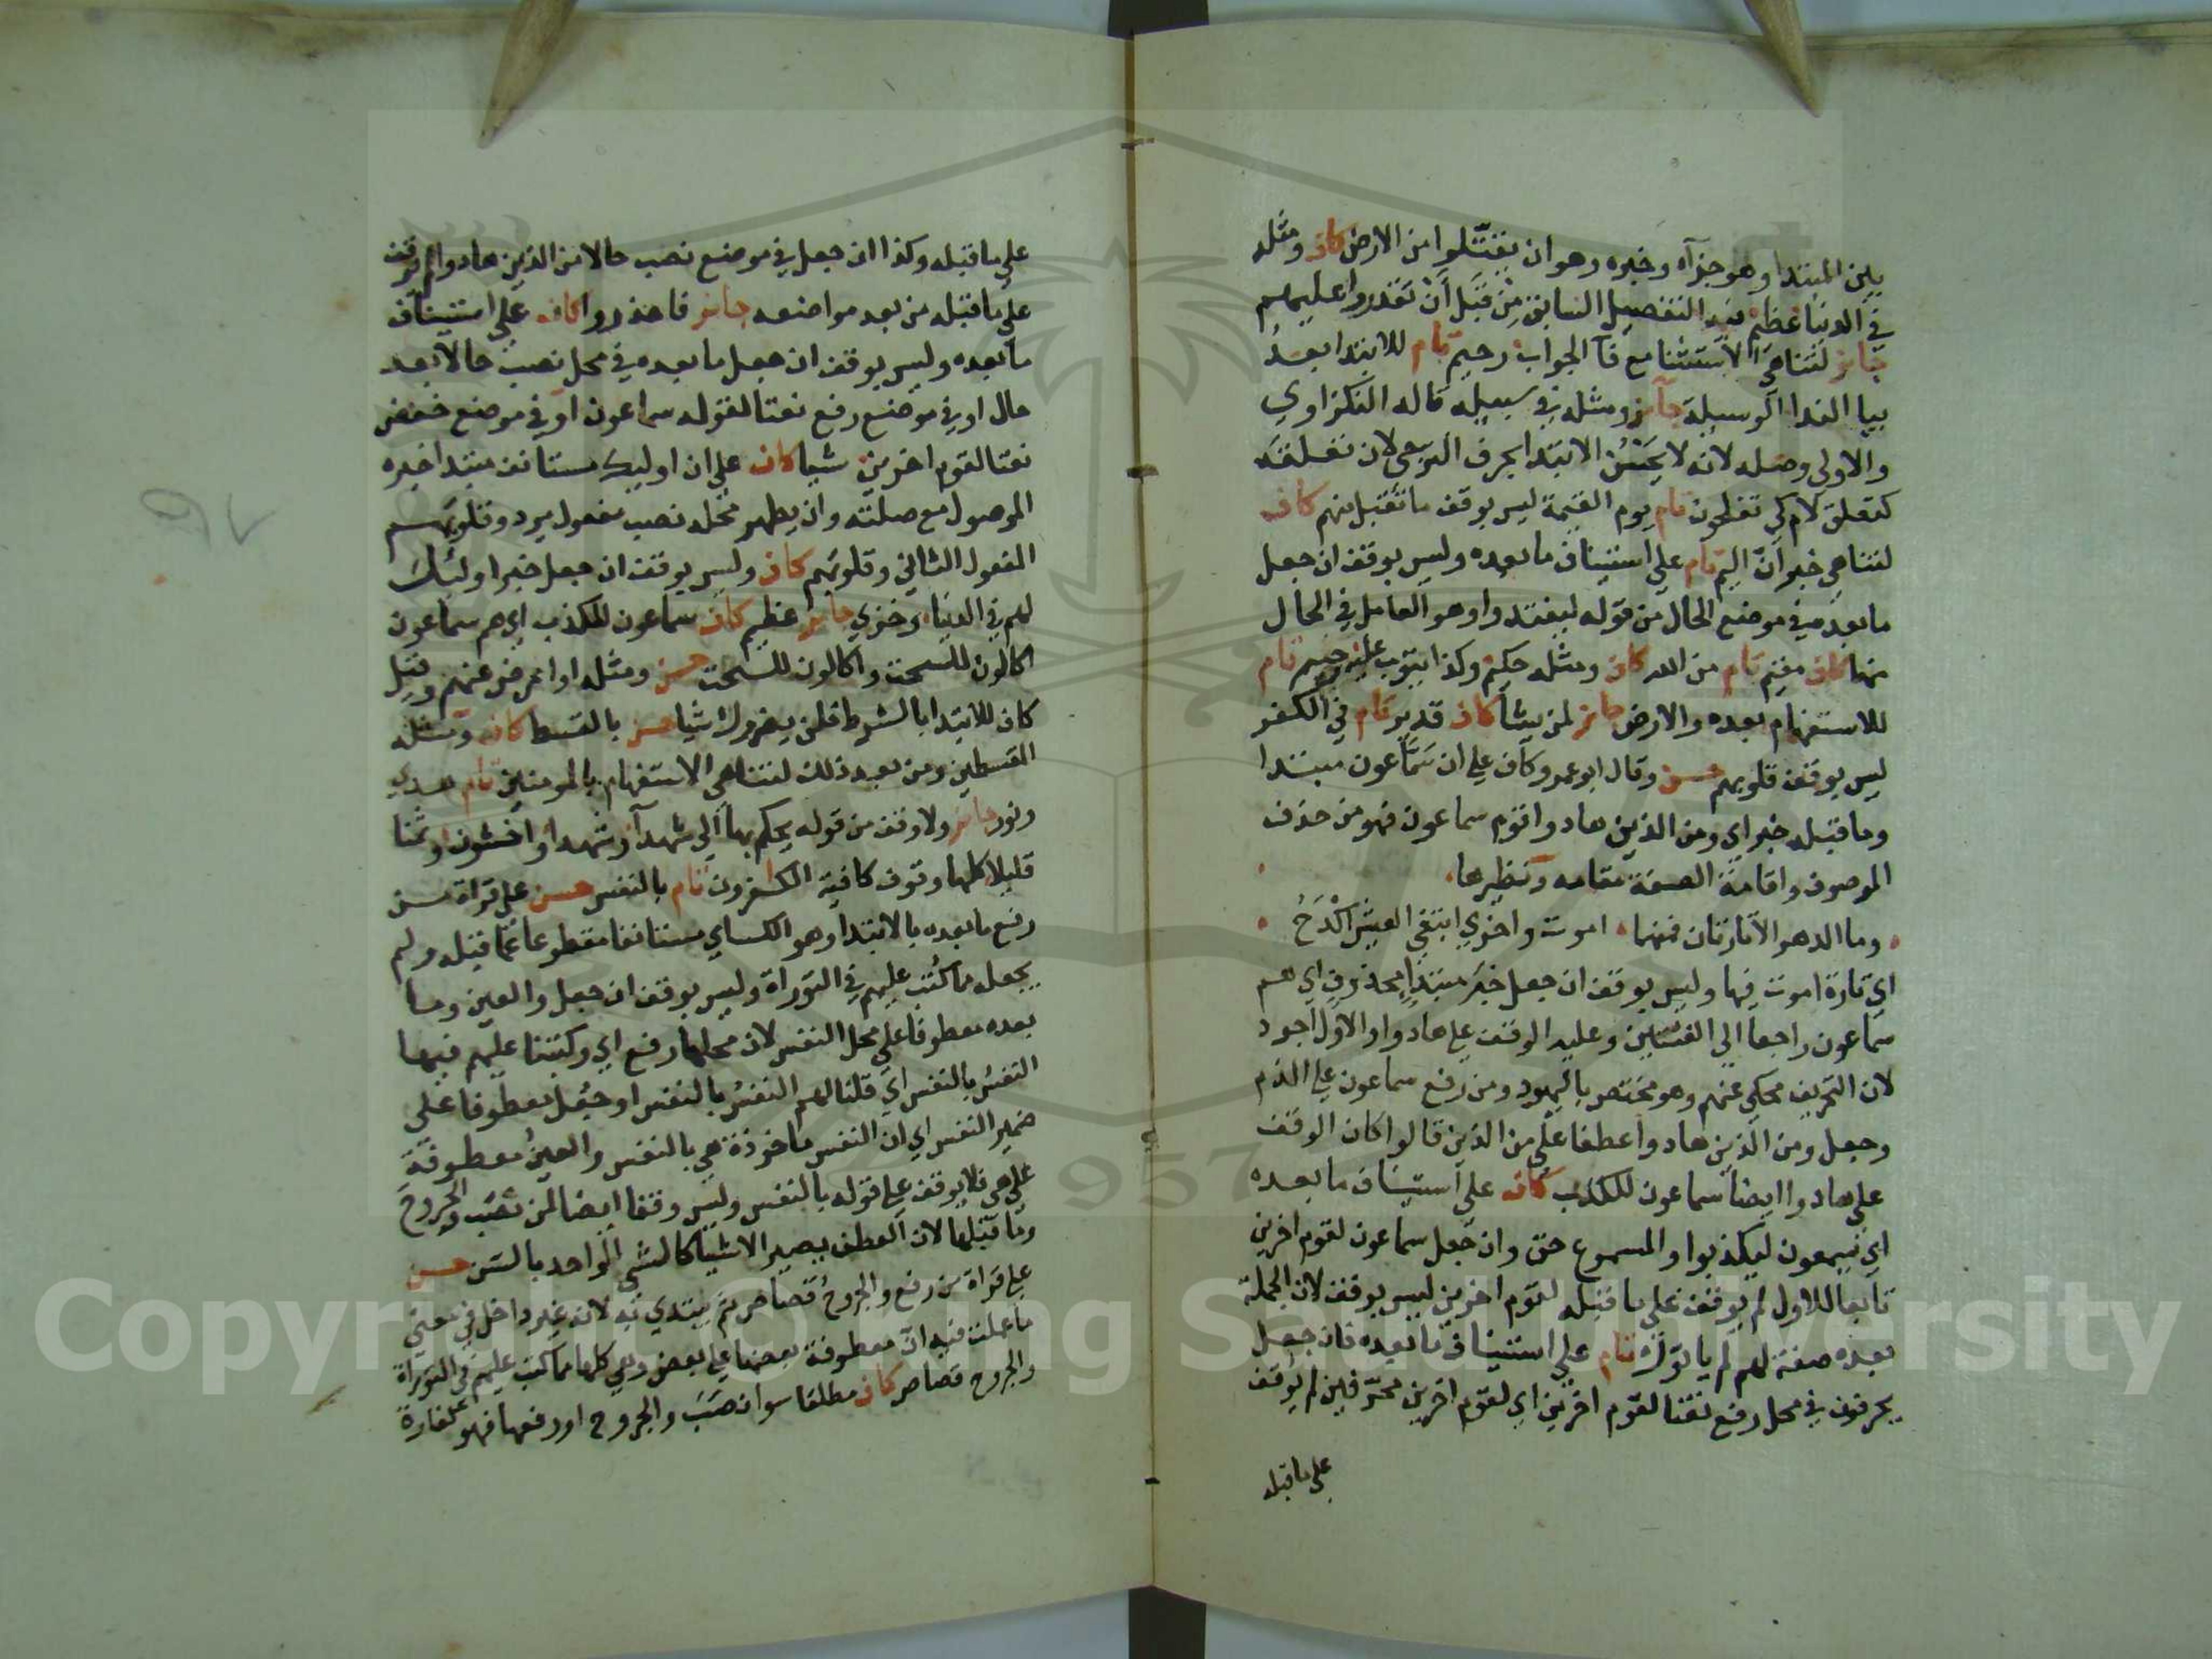 بين المبتدا وهو جزآء وخبره وهو ان يقتّلوا من الارض كاف ومثله
في الدنيا عظيم فيه التفصيل السابق مِنْ قَبْل أنْ تَقدروا عليهم
جايز لتناهي الاستثنا مع فآ الجواب رحيم تام للابتدا بعدُ
بيا الندا الوسيلة جآيز ومثله في سبيله قاله النكزاوي
والاولى وصله لانه لا يَحْسُنُ الابتدا بحرف الترجي لان تعلقَه
كتعلق لام كي تفلحون تام يوم القيمة ليس بوقف ما تقبل منهم كاف
لتناهي خبر انّ اليم تام على استيناف ما بعده وليس بوقف ان جعل
ما بعده في موضع الحال من قوله ليفتدوا وهو العامل في الحال
منها كاف مقيم تام من الله كاف ومثله حكيم وكذا يتوب عليه رحيم تام
للاستفهام بعده والارض جايز لمن يشآ كاف قدير تام في الكفر
ليس بوقف قلوبهم حسن وقال ابو عمرو كاف على ان سَمَّاعون مبتدا
وما قبله خبر اي ومن الذين هادوا قوم سماعون فهو من حذف
الموصوف واقامة الصفة مقامه ونظيرها
وما الدهر الا تارتان فمنها اموت واخرى ابتغي العيش اكْدَحُ
اي تارة اموت فيها وليس بوقف ان جعل خبرَ مبتدإٍ محذوف اي هم
سماعون راجعا الى الفئتين وعليه الوقف على هادوا والاول اجود
لان التحريف محكي عنهم وهو مختص باليهود ومن رفع سماعون على الذم
وجعل ومن الذين هادوا عطفا على من الذين قالوا كان الوقف
على هادوا ايضا سماعون للكذب كاف على استيناف ما بعده
اي يسمعون ليكذبوا والمسموع حق وان جعل سماعون لقوم اخرين
تابعا للاول لم يوقف على ما قبله لقوم اخرين ليس بوقف لان الجملة
بعده صفة لهم لم ياتوك تام على استيناف ما بعده فان جعل
يحرفون في محل رفع نعتا لقوم اخرين اي لقوم اخرين محرّفين لم يوقف
على ما قبله
على ما قبله وكذا ان جعل في موضع نصب حالا من الذين هادوا لم يوقف
على ما قبله من بعد مواضعه جايز فاحذروا كاف على استيناف
ما بعده وليس بوقف ان جعل ما بعده في محل نصب حالا بعد
حال او في موضع رفع نعتا لقوله سماعون او في موضع خفض
نعتا لقوم اخرين شيا كاف على ان اوليك مستانف مبتدا خبره
الموصول مع صلته وان يطهر محله نصب مفعول يرد وقلوبهم
المفعول الثاني وقلوبهم كاف وليس بوقف ان جعل خبر اولئك
لهم في الدنيا وخزي جايز عظيم كاف سماعون للكذب اي هم سماعون
اكالون للسحت واكالون للسحت حسن ومثله او اعرض عنهم وقيل
كاف للابتدا بالشرط فلن يضروك شيا حسن بالقسط كاف ومثله
المقسطين ومن بعد ذلك لتناهي الاستفهام بالمومنين تام هدى
ونور جايز ولا وقف من قوله يحكم بها الى شهدآ وشهدا واخشون وثمنا
قليلا كلها وقوف كافية الكفرون تام بالنفس حسن على قراة من
رفع ما بعده بالابتدا وهو الكساي مستانفا مقطوعا عما قبله ولم
يجعله مما كُتب عليهم في التوراة وليس بوقف ان جعل والعين وما
بعده معطوفا على محل النفس لان محلها رفع اي وكتبنا عليهم فيها
النفسُ بالنفس اي قلنا لهم النفسُ بالنفس او جُعل معطوفا على
ضمير النفس اي ان النفس ماخوذة هي بالنفس والعينُ معطوفة
على هي فلا يوقف على قوله بالنفس وليس وقفا ايضا لمن نصَب والجروح
وما قبلها لان العطف يصير الاشيا كالشي الواحد بالسن حسن
على قراة من رفع والجروحُ قصاص ثم يبتدي به لانه غير داخل في معنى
ما عملت فيه انّ معطوفة بعضها على بعض وهي كلها مما كتب عليهم في التوراة
والجروح قصاص كاف مطلقا سوا نصَبَ والجروح او رفعها فهو كفارة
Copyright © King Saud University
1957